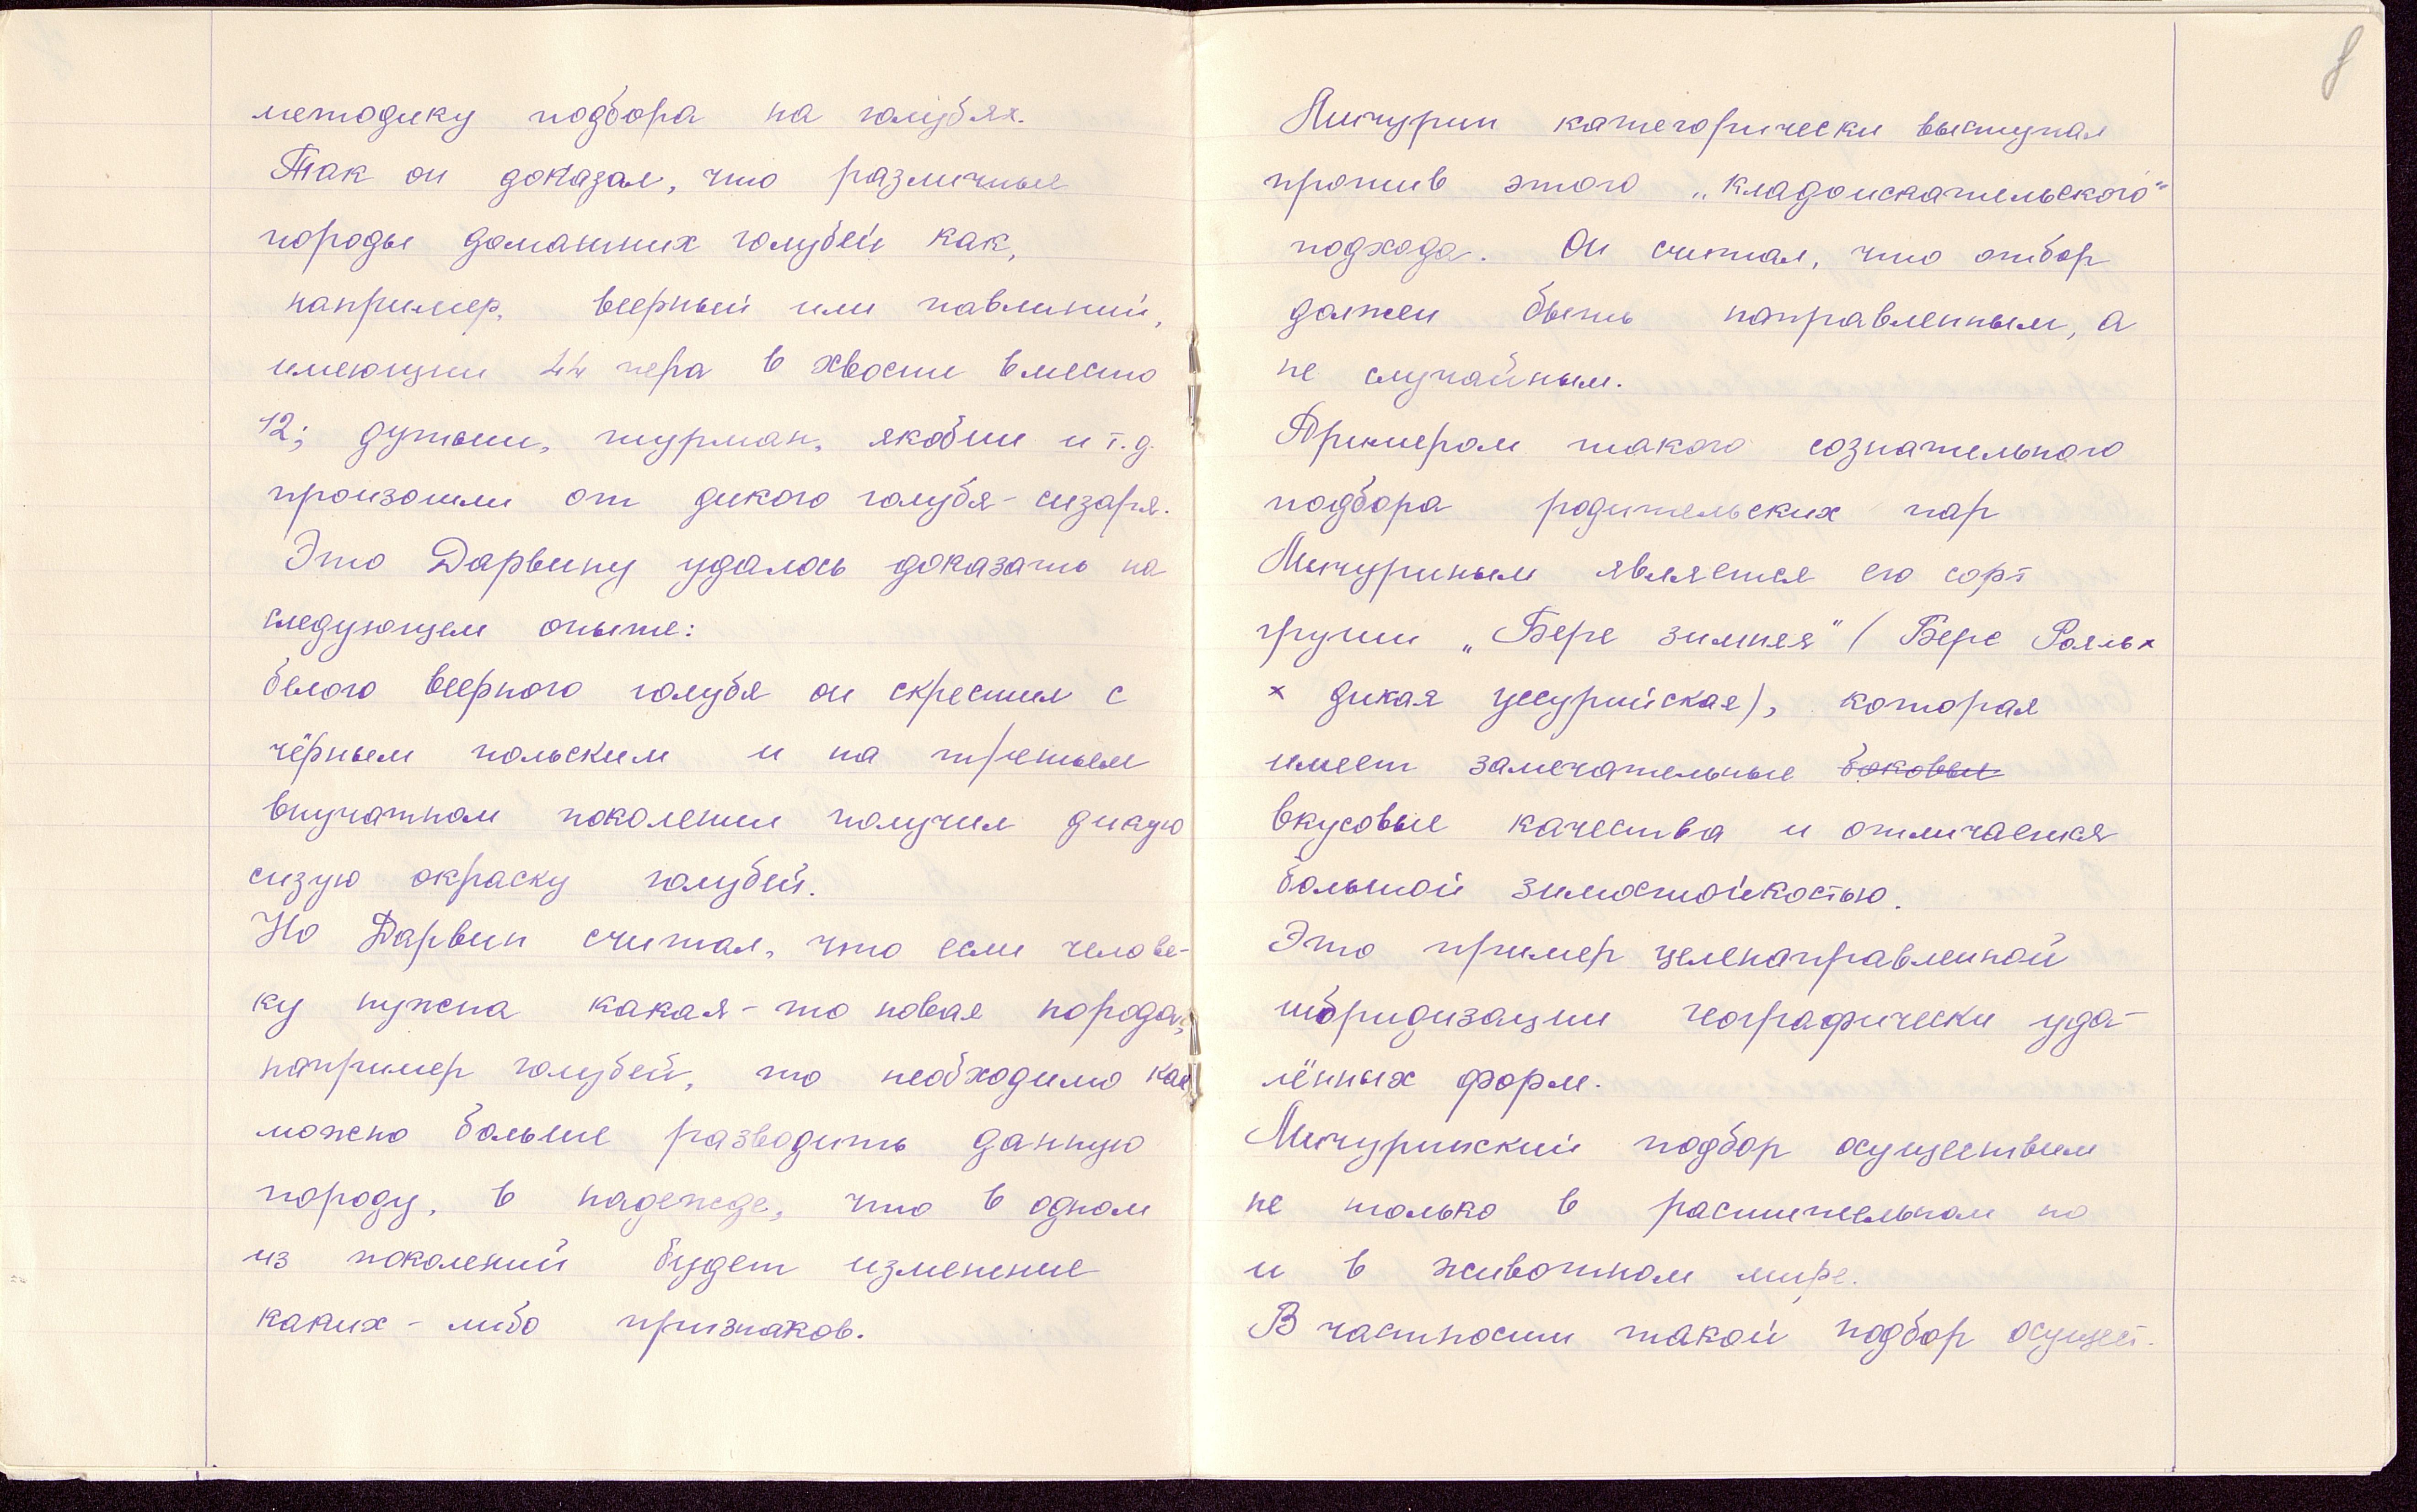 методику подбора на голубях.
Так он доказал, что различные
породы домашних голубей как,
например, веерный или павлиний,
имеющии 44 пера в хвосте вместо
12; дутыш, турман, якобин и т.д.
произошли от дикого голубя-сизаря.
Это Дарвину удалось доказать на
следующем опыте:
белого веерного голубя он скрестил с
чёрным польским и на третьем
внучатном поколении получил дикую
сизую окраску голубей.
Но Дарвин считал, что если челове-
ку нужна какая-то новая порода,
например голубей, то необходимо как
можно больше разводить данную
породу, в надежде, что в одном
из поколений будет изменение
каких-либо признаков.
8
Мичурин категорически выступал
против этого „кладоискательского“
подхода. Он считал, что отбор
должен быть направленным, а
не случайным.
Примером такого сознательного
подбора родительских пар
Мичуриным является его сорт
груши „Бере зимняя“ (Бере Рояль х
х дикая уссурийская), которая
имеет замечательные боковые
вкусовые качества и отличается
большой зимостойкостью.
Это пример целенаправленной
гибридизации географически уда-
лённых форм.
Мичуринский подбор осуществим
не только в растительном но
и в животном мире.
В частности такой подбор осущест-